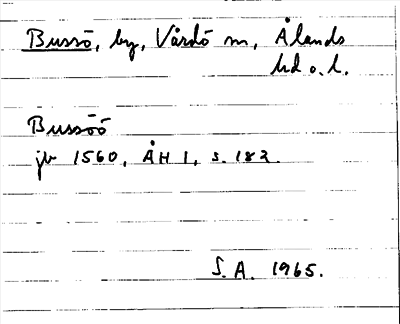 Bussö, by, Vårdö sn, Ålands
hd o. l.
Bussöö
jb 1560, ÅH 1, s. 182.
S.A. 1965.